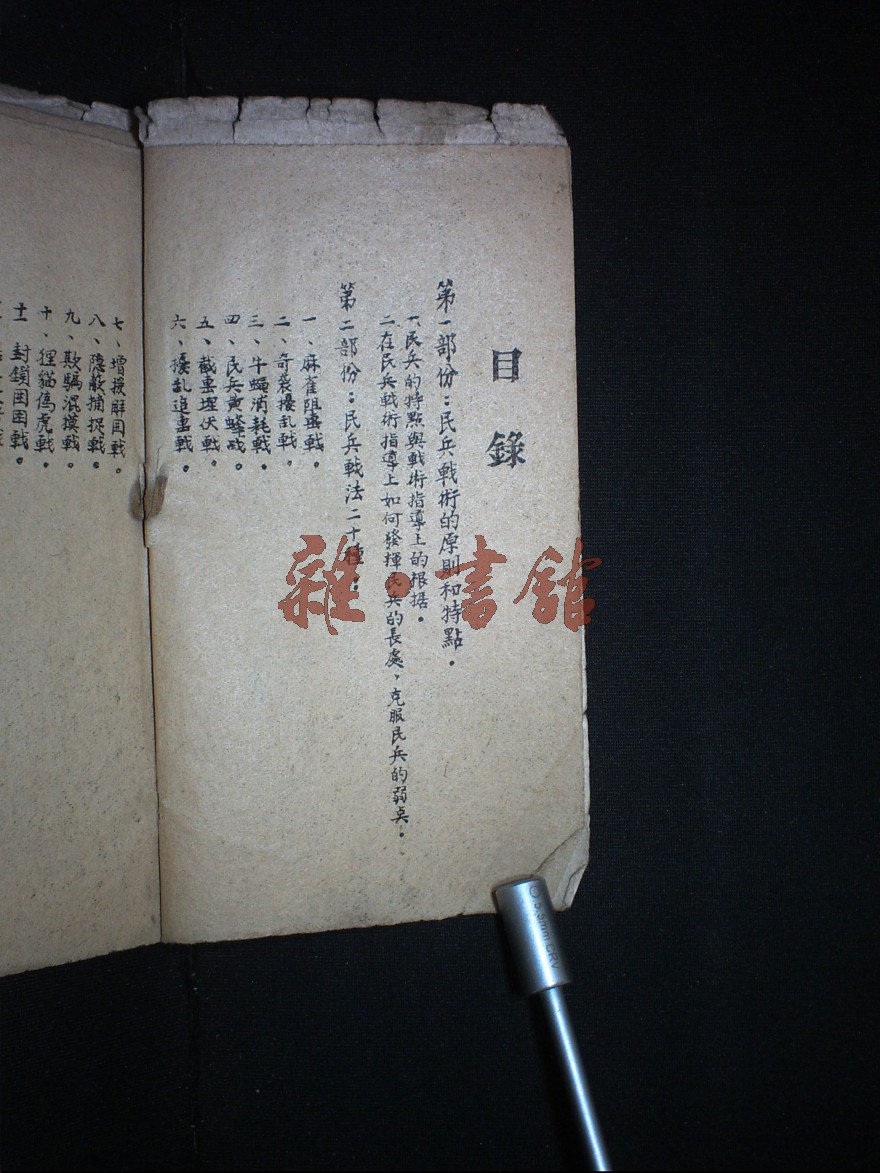 目錄
第一部份：民兵戰術的原則和特點．
一、民兵的特點與戰術指導上的根据．
二、在民兵戰術指導上如何發揮民兵的長處，克服民兵的弱点．
第二部份：民兵戰法二十種：
一、麻雀阻击戰．
二、奇袭擾乱戰．
三、牛蝇消耗戰．
四、民兵黄蜂战．
五、截击埋伏戰．
六、擾乱追击戰．
七、增援解囲戰．
八、隱蔽捕捉戰．
九、欺騙混摸戰．
十、狸貓偽虎戰．
十一 封鎖囲困戰．
雜·書舘
5.5mm CRV